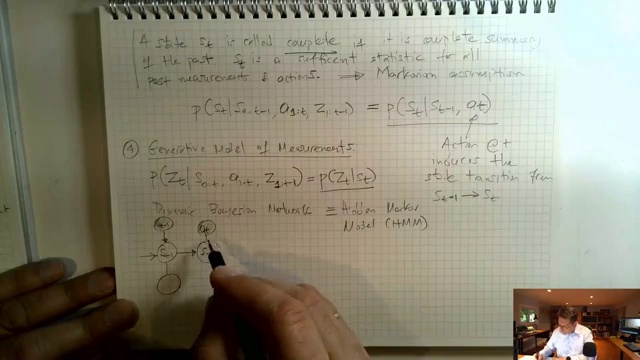 A state St is called complete if it is complete summary
of the past St is a sufficient statistic for all
past measurements & actions. ⟹ Markovian assumption
p(St | S0:t-1, a1:t, Z1:t-1) = p(St | St-1, at)
Action @ t
induces the
state transition from
St-1 → St
④ Generative Model of Measurements
p(Zt | S0:t, a1:t, Z1:t-1) = p(Zt | St)
Dynamic Bayesian Networks ≡ Hidden Markov
Model (HMM)
at-1 at
St-1